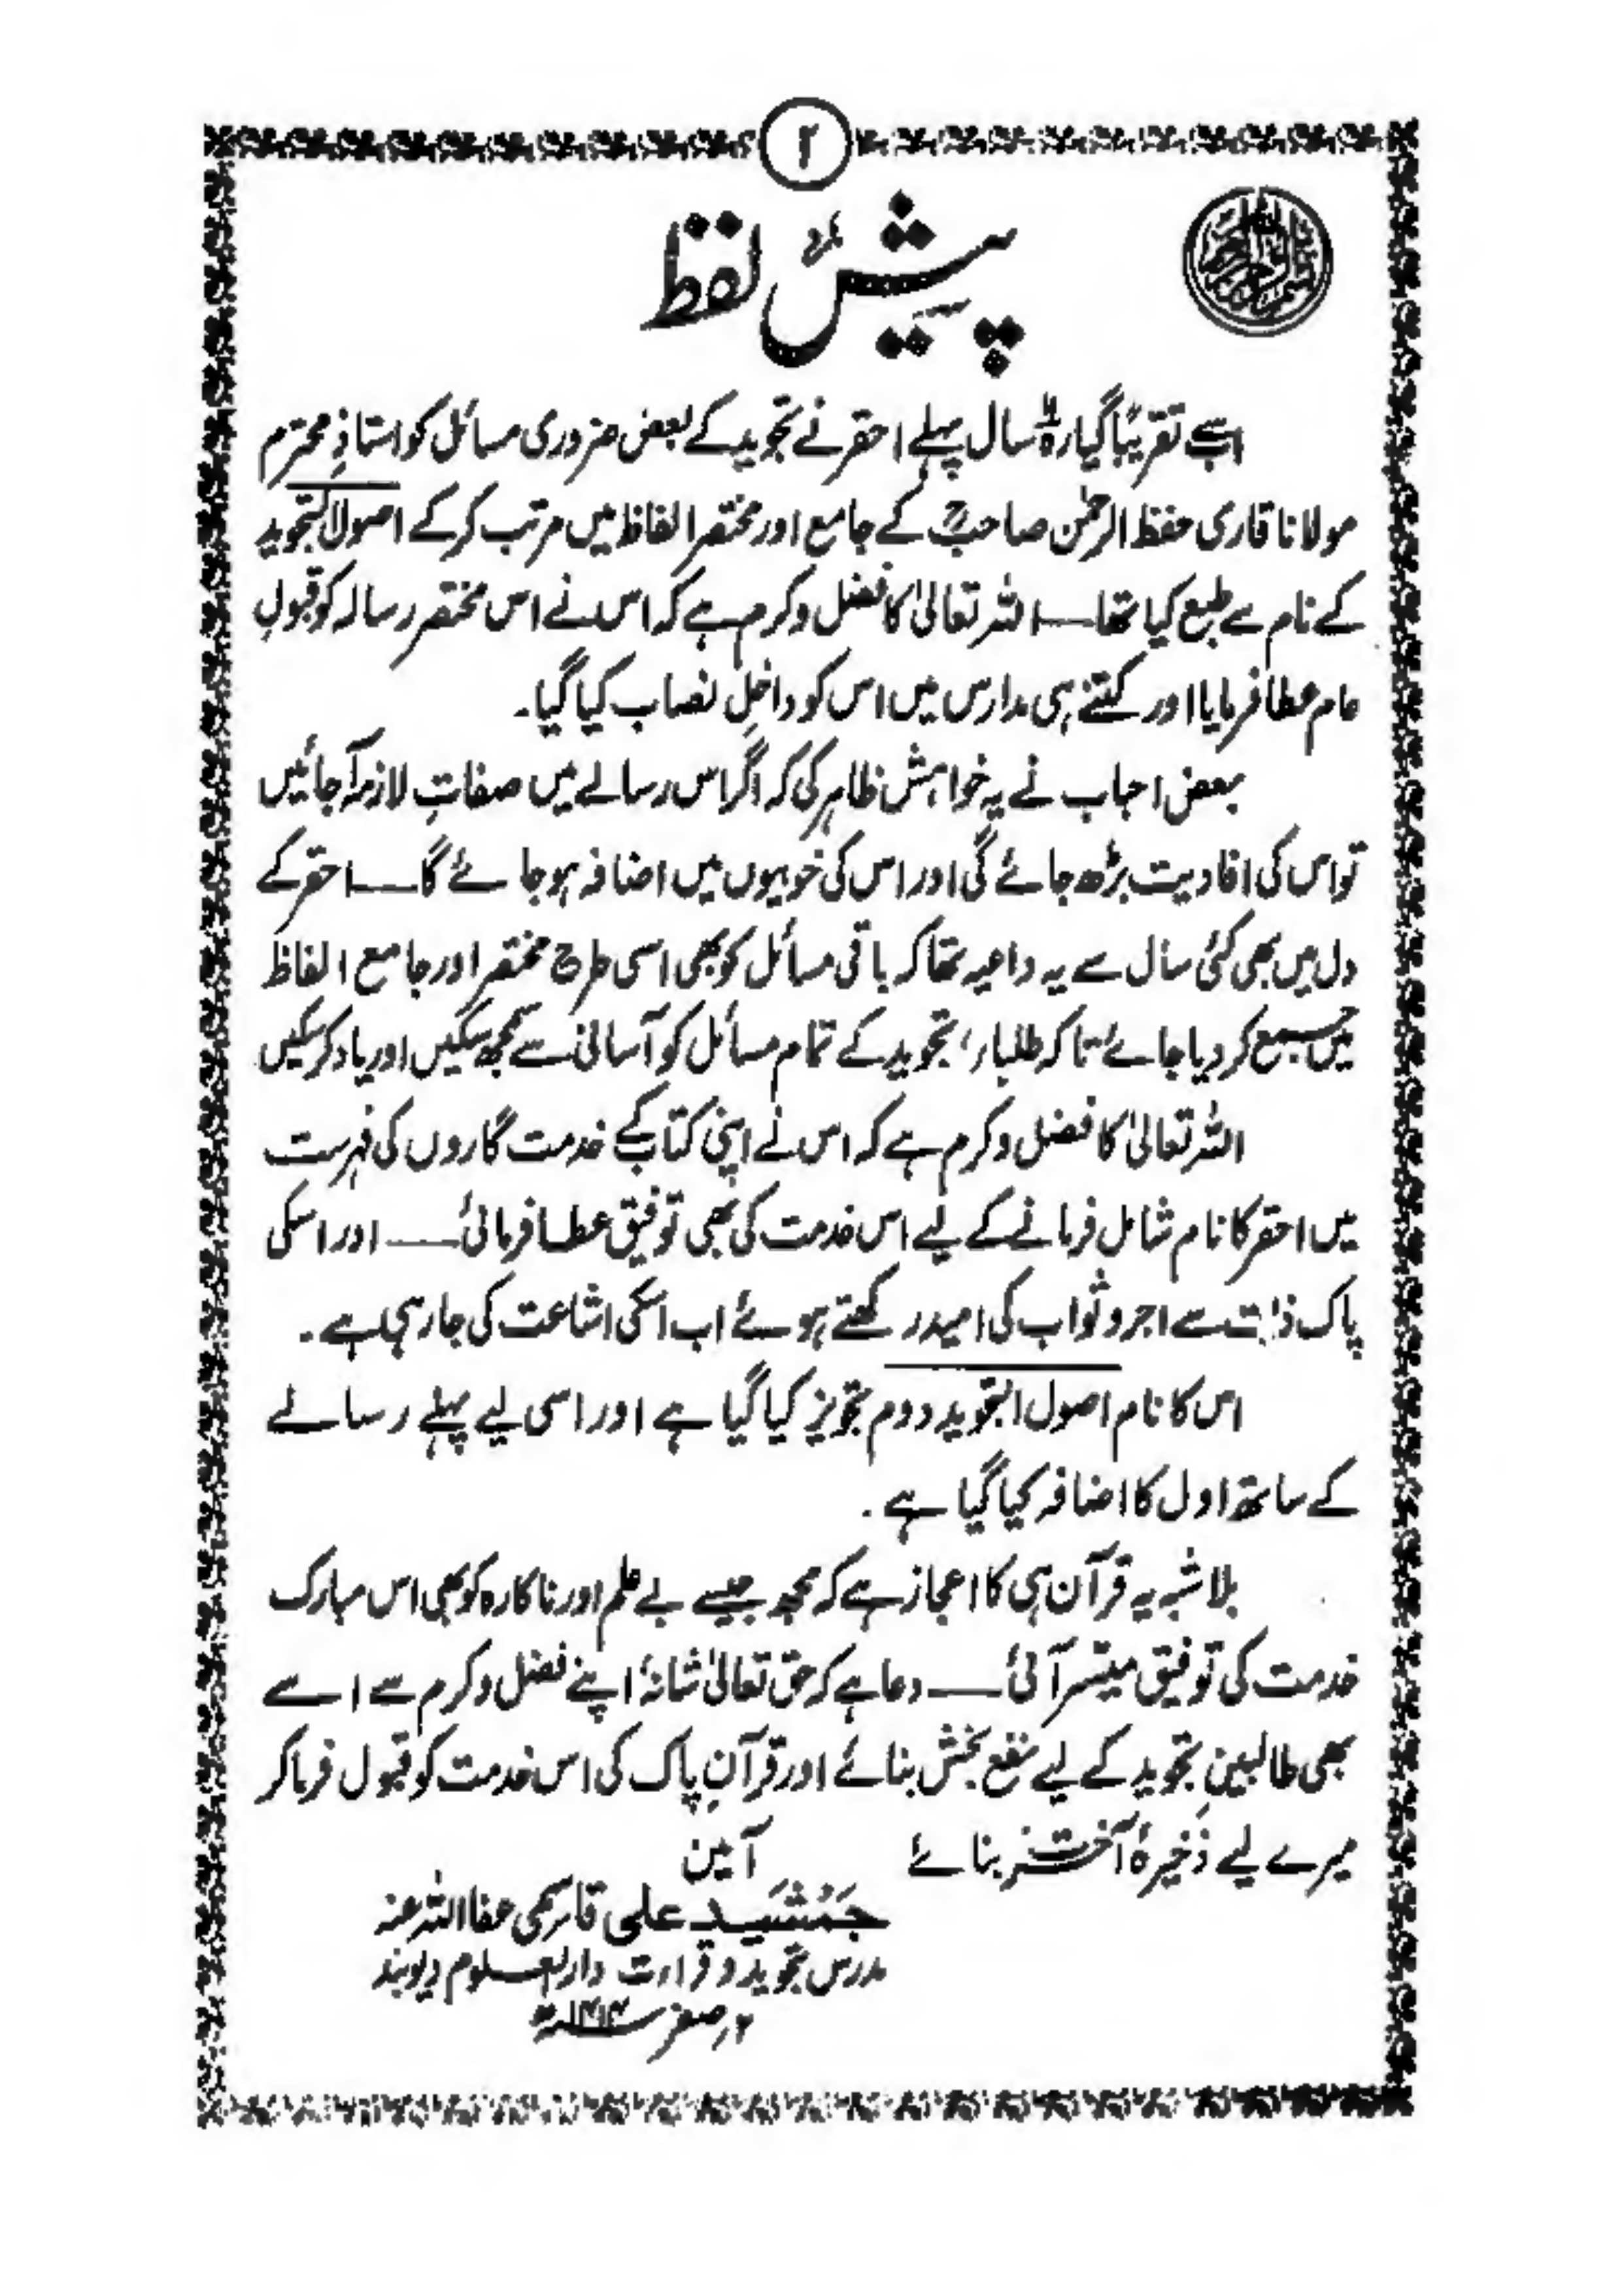 ۲
بسم اللہ الرحمن الرحیم
پیش لفظ
اب سے تقریبًا گیارہ سال پہلے احقر نے تجوید کے بعض ضروری مسائل کو استاذِ محترم
مولانا قاری حفظ الرحمٰن صاحبؒ کے جامع اور مختصر الفاظ میں مرتب کرکے اصول التجوید
کے نام سے طبع کیا تھا — اللہ تعالیٰ کا فضل وکرم ہے کہ اس نے اس مختصر رسالہ کو قبولِ
عام عطا فرمایا اور کتنے ہی مدارس میں اس کو داخلِ نصاب کیا گیا۔
بعض احباب نے یہ خواہش ظاہر کی کہ اگر اس رسالے میں صفاتِ لازمہ آجائیں
تو اس کی افادیت بڑھ جائے گی اور اس کی خوبیوں میں اضافہ ہوجائے گا — احقر کے
دل میں بھی کئی سال سے یہ داعیہ تھا کہ باقی مسائل کو بھی اسی طرح مختصر اور جامع الفاظ
میں جمع کردیا جائے تاکہ طلباء، تجوید کے تمام مسائل کو آسانی سے سمجھ سکیں اور یاد کرسکیں
اللہ تعالیٰ کا فضل وکرم ہے کہ اس نے اپنی کتاب کے خدمت گاروں کی فہرست
میں احقر کا نام شامل فرمانے کے لیے اس خدمت کی بھی توفیق عطا فرمائی — اور اسکی
پاک ذات سے اجر وثواب کی امید رکھتے ہوئے اب اسکی اشاعت کی جارہی ہے۔
اس کا نام اصول التجوید دوم تجویز کیا گیا ہے اور اسی لیے پہلے رسالے
کے ساتھ اول کا اضافہ کیا گیا ہے۔
بلاشبہ یہ قرآن ہی کا اعجاز ہے کہ مجھ جیسے بے علم اور ناکارہ کو بھی اس مبارک
خدمت کی توفیق میسّر آئی — دعا ہے کہ حق تعالیٰ شانہٗ اپنے فضل وکرم سے اسے
بھی طالبینِ تجوید کے لیے نفع بخش بنائے اور قرآنِ پاک کی اس خدمت کو قبول فرماکر
میرے لیے ذخیرۂ آخرت بنائے آمین
جَمْشَید علی قاسمی عفا اللہ عنہ
مدرس تجوید و قراءت دارالعلوم دیوبند
۲؍صفر ۱۴۱۴ھ